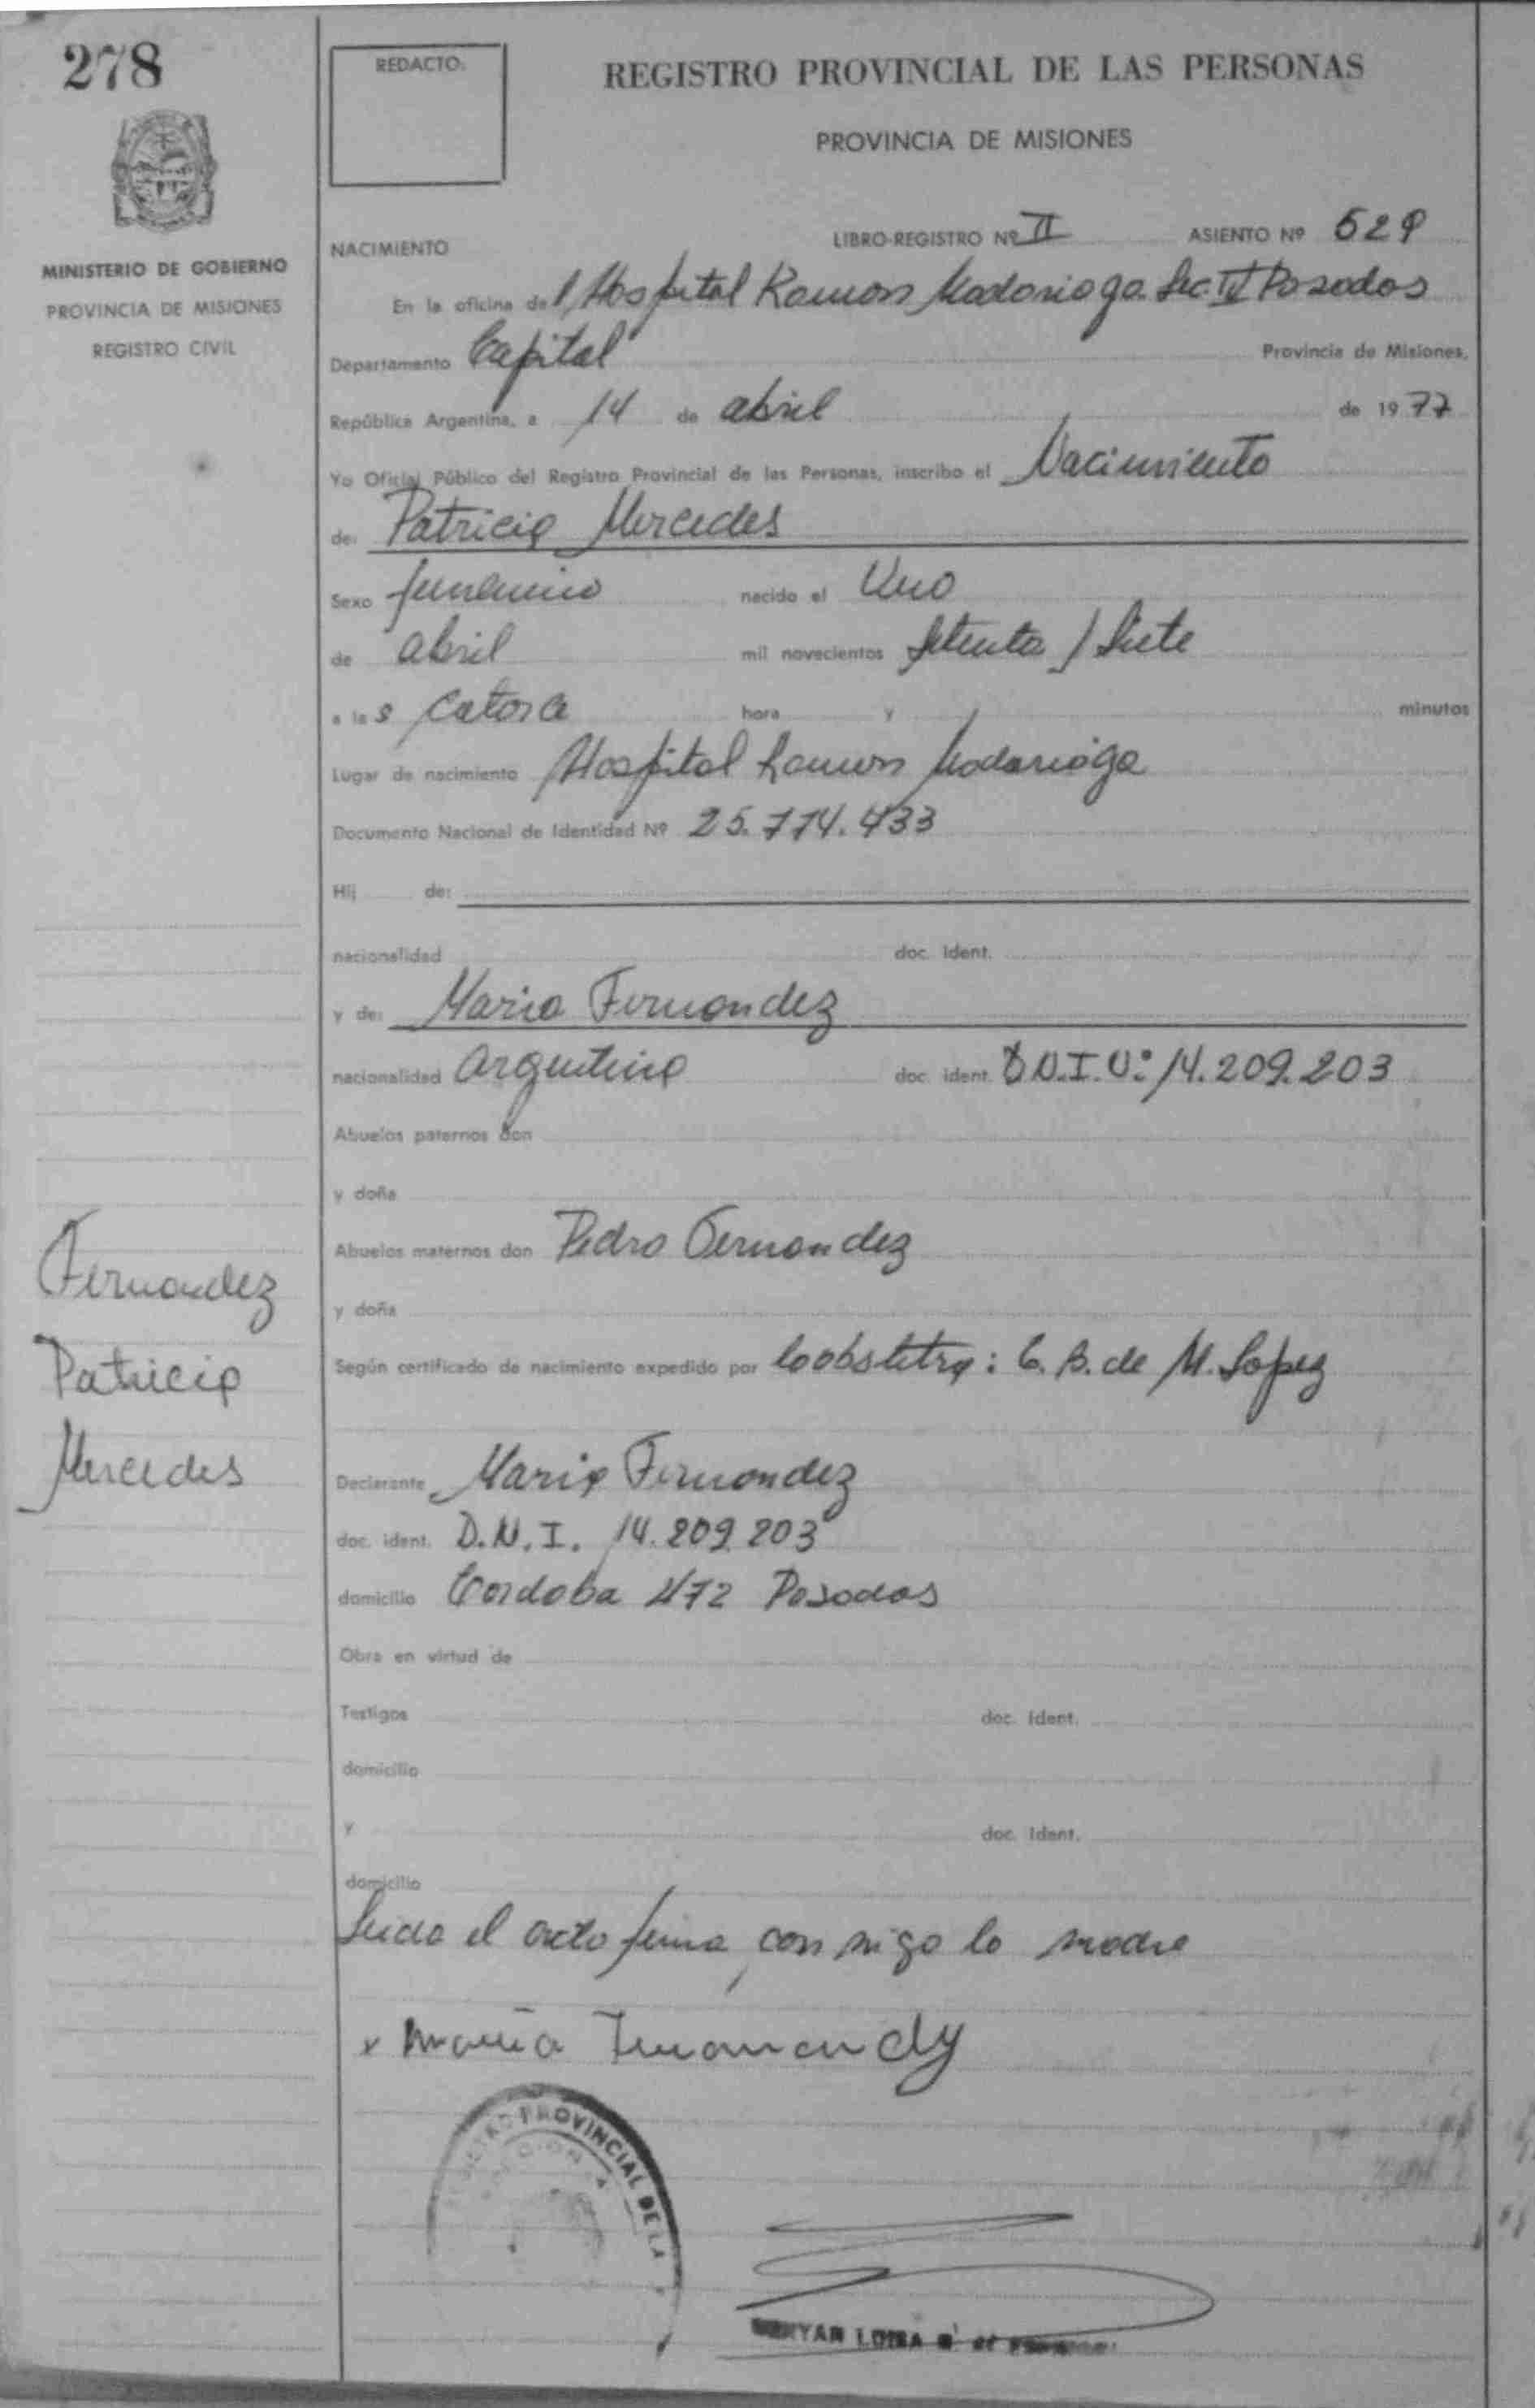 278
REDACTO.
REGISTRO PROVINCIAL DE LAS PERSONAS
PROVINCIA DE MISIONES
MINISTERIO DE GOBIERNO
PROVINCIA DE MISIONES
REGISTRO CIVIL
NACIMIENTO
LIBRO-REGISTRO Nº II ASIENTO Nº 529
En la oficina del Hospital Ramon Madariaga Sec. IV Posadas
Departamento Capital Provincia de Misiones,
República Argentina, a 14 de abril de 1977
Yo Oficial Público del Registro Provincial de las Personas, inscribo el Nacimiento
de: Patricia Mercedes
Sexo femenino nacido el Uno
de abril mil novecientos setenta / siete
a las catorce hora y minutos
Lugar de nacimiento Hospital Ramon Madariaga
Documento Nacional de Identidad Nº 25.774.433
Hij de:
nacionalidad doc. Ident.
y de: Maria Fernandez
nacionalidad argentina doc. ident. D.N.I. Nº 14.209.203
Abuelos paternos don
y doña
Abuelos maternos don Pedro Fernandez
y doña
Según certificado de nacimiento expedido por la obstetra: C. B. de M. Lopez
Declarante Maria Fernandez
doc. ident. D.N.I. 14.209.203
domicilio Cordoba 472 Posadas
Obra en virtud de
Testigos doc. Ident.
domicilio
y doc. Ident.
domicilio
Leida el acta firma con migo la madre
x Maria
Fernandez
Patricia
Mercedes
PROVINCIAL DE LA